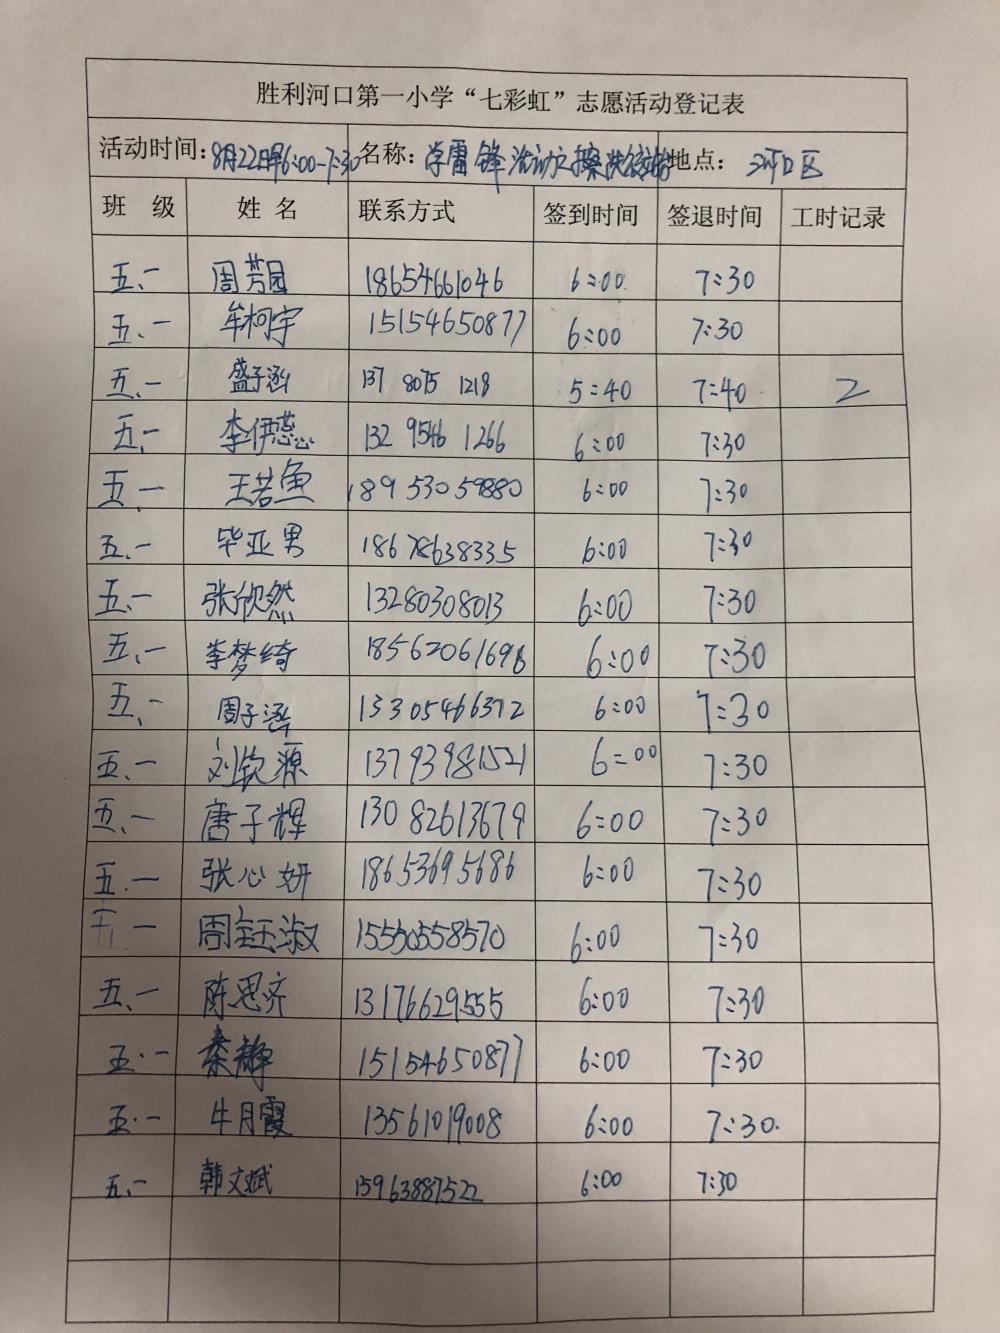 胜利河口第一小学“七彩虹”志愿活动登记表
活动时间：8月22日早6:00-7:30 名称：学雷锋活动之擦洗 地点：河口区
班 级 姓 名 联系方式 签到时间 签退时间 工时记录
五、一 周芳园 18654661046 6:00 7:30
五、一 牟柯宇 15154650877 6:00 7:30
五、一 盛子涵 137 8075 1218 5:40 7:40 2
五、一 李伊蕊 132 9546 1266 6:00 7:30
五一 王若鱼 18953059880 6:00 7:30
五、一 毕亚男 18678638335 6:00 7:30
五、一 张欣然 13280308013 6:00 7:30
五、一 李梦绮 18562061698 6:00 7:30
五、一 周子涵 13305466372 6:00 7:30
五、一 刘钦源 13793981521 6:00 7:30
五、一 唐子辉 13082613679 6:00 7:30
五.一 张心妍 18653695686 6:00 7:30
五一 周钰淑 15550558570 6:00 7:30
五、一 陈思齐 13176629555 6:00 7:30
五.一 秦静 15154650877 6:00 7:30
五.一 牛月霞 13561019008 6:00 7:30.
五、一 韩文斌 15963887522 6:00 7:30